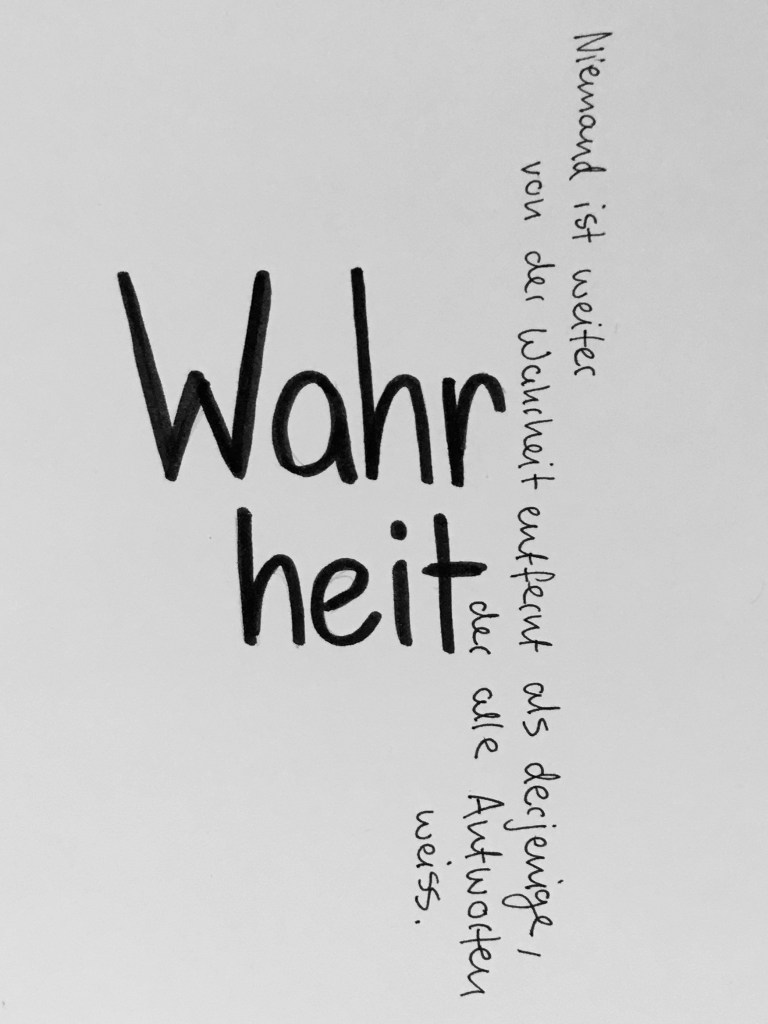 Wahr
heit
Niemand ist weiter
von der Wahrheit entfernt als derjenige,
der alle Antworten
weiss.